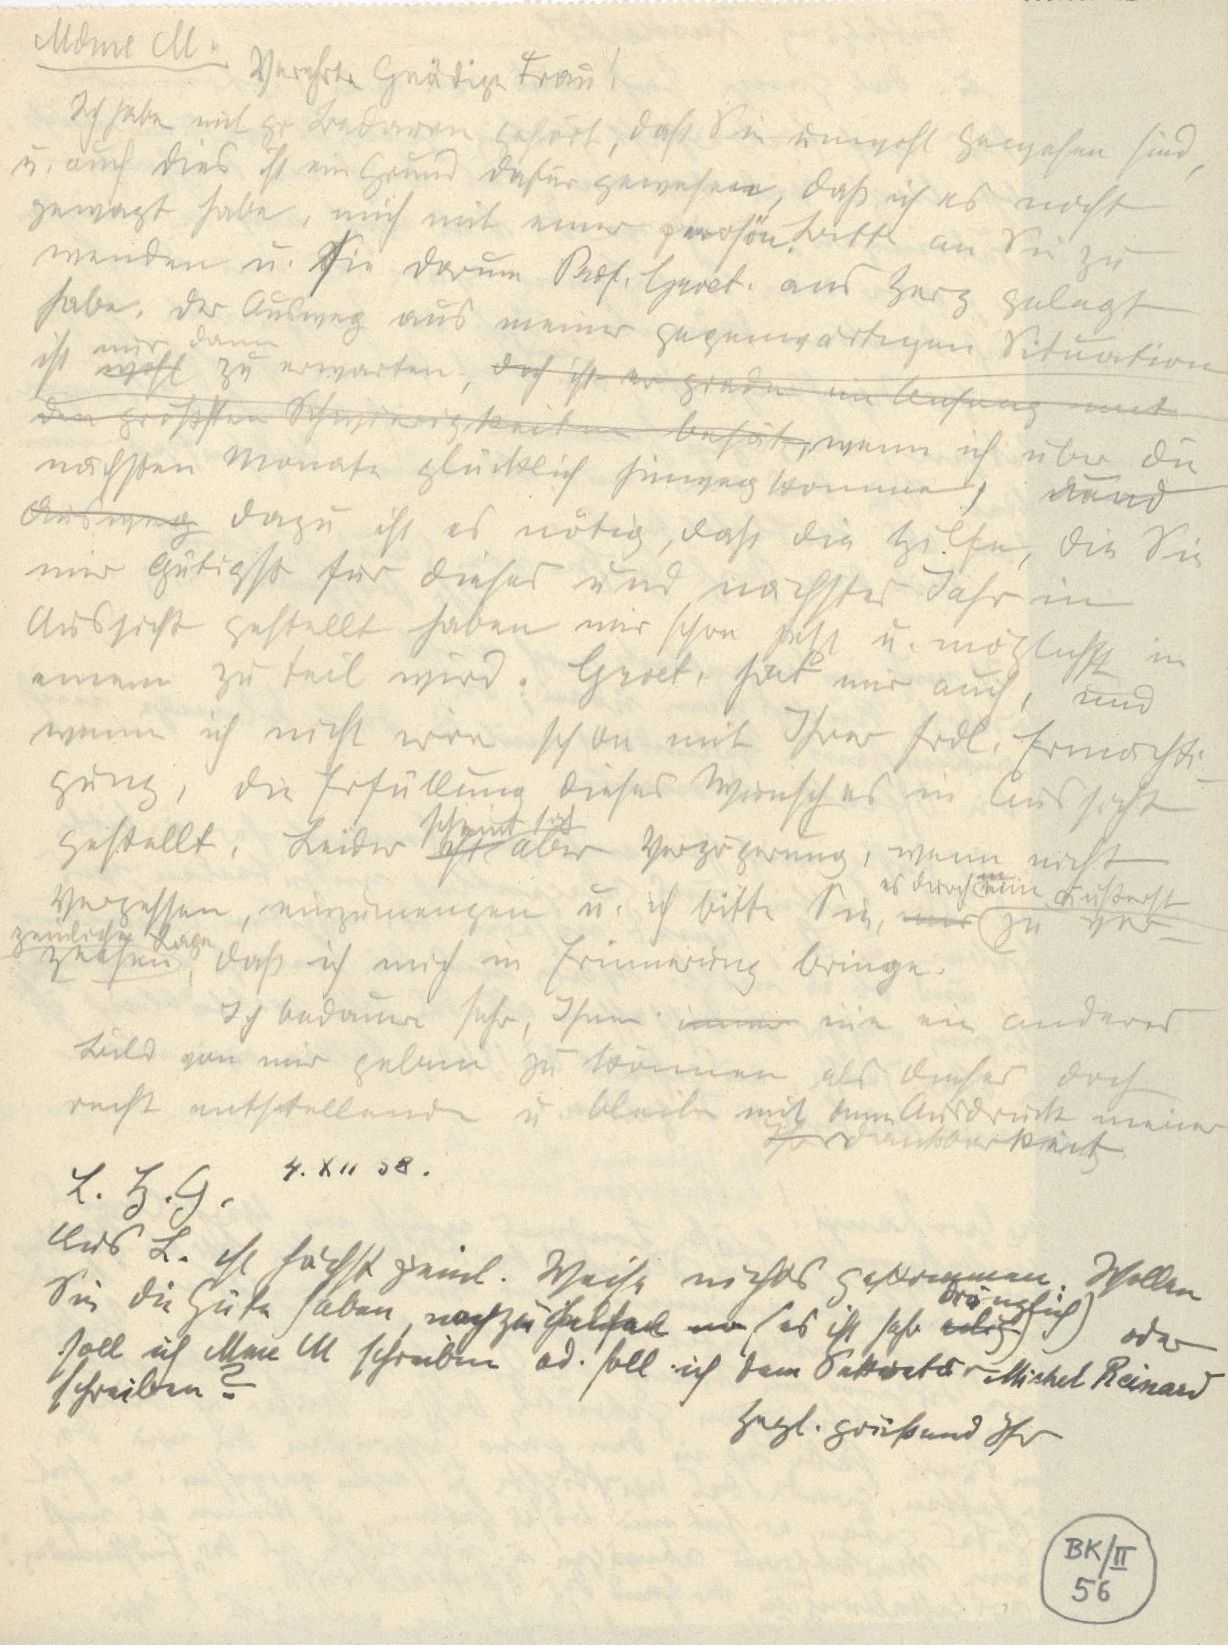 Mdme M.
Verehrte Gnädige Frau!
Ich habe mit gr Bedauern gehört, daß Sie unwohl gewesen sind,
u. auch dies ist ein Grund dafür gewesen, daß ich es nicht
gewagt habe, mich mit einer persön. Bitte an Sie zu
wenden u. Sie darum Prof. Groet. ans Herz gelegt
habe. Der Ausweg aus meiner gegenwärtigen Situation
ist wohl nur dann zu erwarten, doch ist er grade im Anfang mit
den größten Schwierigkeiten besät, wenn ich über die
nächsten Monate glücklich hinweg komme, und
Ausweg dazu ist es nötig, daß die Hilfe, die Sie
mir gütigst für dieses und nächstes Jahr in
Aussicht gestellt haben mir schon jetzt u. möglichst in
einem zu teil wird. Groet. hat mir auch, und
wenn ich nicht irre schon mit Ihrer frdl. Ermächti-
gung, die Erfüllung dieses Wunsches in Aussicht
gestellt. Leider ist scheint sich aber Verzögerung, wenn nicht
Vergessen, einzumengen u. ich bitte Sie, es durch meine äußerst
peinliche Lage mir zu ver-
zeihen, daß ich mich in Erinnerung bringe.
Ich bedaure sehr, Ihnen immer nie ein anderes
Bild von mir geben zu können als dieses doch
recht entstellende u. bleibe mit dem Ausdruck meiner
Dankbarkeit
L. H. G. 4. XII 38.
Aus L. ist höchst peinl. Weise nichts gekommen. Wollen
Sie die Güte haben nachzuhelfen (es ist sehr eilig dringlich) oder
soll ich Mme M schreiben od. soll ich dem Sekretär Michel Reinard
schreiben?
Hzgl. grüßend Ihr
BK/II
56